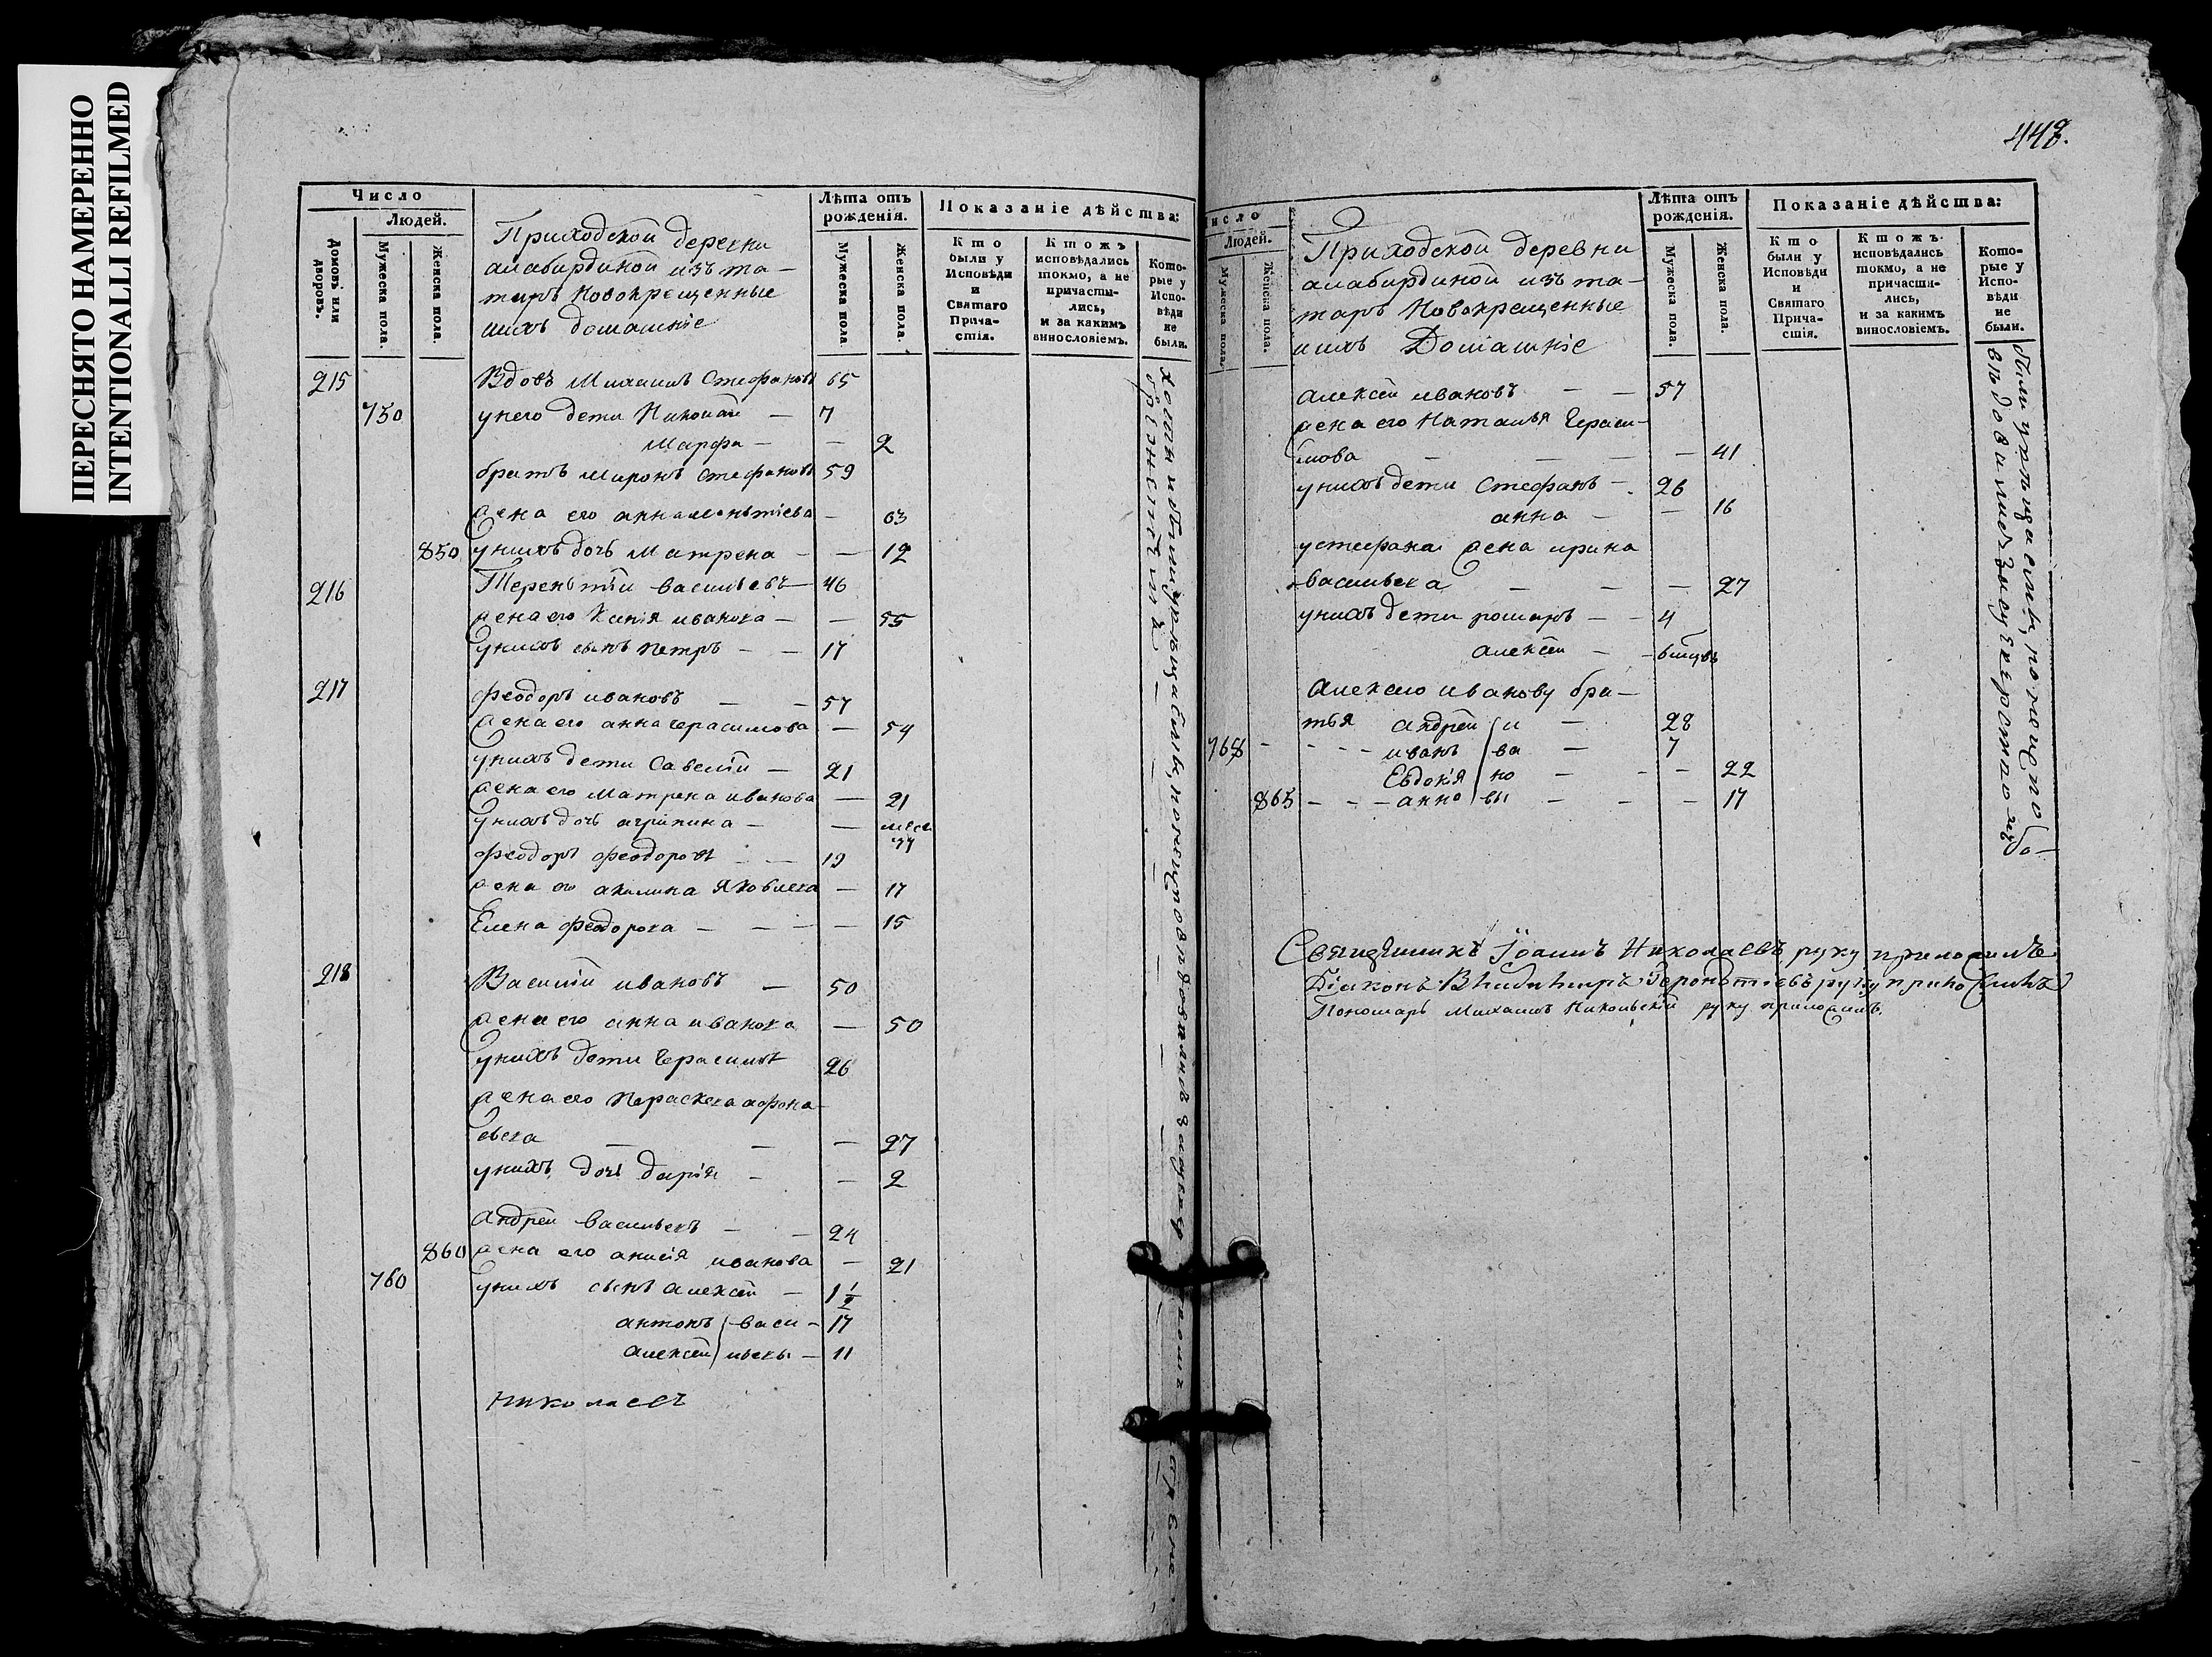 ПЕРЕСНЯТО НАМЕРЕННО
INTENTIONALLI REFILMED
Число
Людей.
Домовъ или дворовъ.
Мужеска пола.
Женска пола.
Приходской деревни
алабирдиной изъ та-
таръ Новокрещенные
ихъ домашніе
Лѣта отъ рожденія.
Мужеска пола.
Женска пола.
Показаніе дѣйства:
Кто были у Исповѣди и Святаго Прича-стія.
Ктожъ исповѣдались токмо, а не причасти-лись, и за какимъ винословіемъ.
Кото-рые у Испо-вѣди не были.
215 Вдовъ Михаилъ Стефановъ 65
750 у него дети Николай — 7
Марфа — — 2
братъ Миронъ Стефановъ 59
жена его анна леонтіева — 63
850 у нихъ дочь Матрена — — 12
216 Терентій васильевъ — 46
жена его Ксенія иванова — — 55
у нихъ сынъ Петръ — — 17
217 Феодоръ ивановъ — — 57
жена его анна герасимова — 54
у нихъ дети Савелій — 21
жена его матрена иванова — 21
у нихъ дочь агрипина — —
Феодоръ Феодоровъ — — 19
жена его акилина Яковлева — 17
Елена Феодорова — — — — 15
218 Василій ивановъ — 50
жена его анна иванова — 50
у нихъ дети Герасимъ 26
жена его Параскева афона-
сьева — — — 27
у нихъ дочь дарія — — 2
андрей васильевъ — — 24
860 жена его анисія иванова — 21
760 у нихъ сынъ алексей — 1 1/2
антонъ васи- 17
алексей льевы — 11
Николаевъ
448.
Число
Людей.
Мужеска пола.
Женска пола.
Приходской деревни
алабирдиной изъ та-
таръ Новокрещенные
ихъ Домашніе
Лѣта отъ рожденія.
Мужеска пола.
Женска пола.
Показаніе дѣйства:
Кто были у Исповѣди и Святаго Прича-стія.
Ктожъ исповѣдались токмо, а не причасти-лись, и за какимъ винословіемъ.
Кото-рые у Испо-вѣди не были.
алексей ивановъ — — 57
жена его Наталья Гераси-
мова — — — — 41
у нихъ дети Стефанъ — 26
анна — — 16
у стефана жена ирина
васильева — — — 27
у нихъ дети — — 4
алексей —
алексею иванову бра-
тья андрей и — 28
768 - - - - иванъ ва — 7
Евдокія но — - - 22
865 - - - анна вы — - - 17
Священникъ Іоаннъ Николаевъ руку приложилъ
Діаконъ Владимиръ Геронтіевъ руку приложилъ
Пономарь Михаилъ Никольскій руку приложилъ.